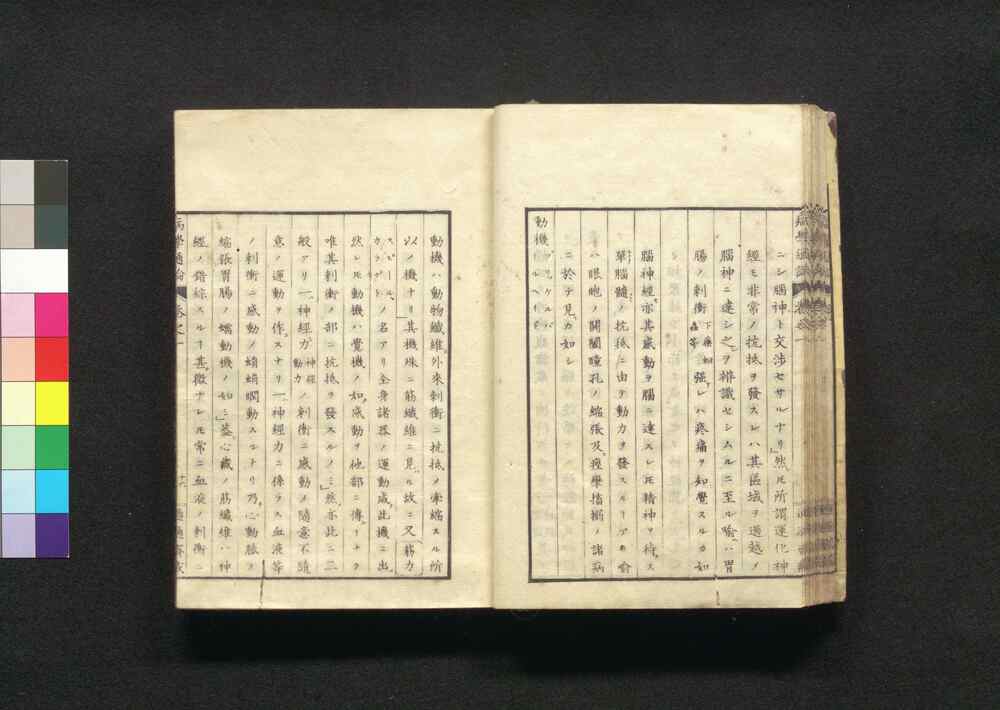 ニシ腦神ト交渉セサルナリ然𪜈所謂運化神
經モ非常ノ抗抵ヲ發スレハ其區域ヲ過越ノ
腦神ニ達シ之ヲ辨識セシムルニ至ル喩ハ胃
腸ノ刺衝下藥如蟲等強レハ疼痛ヲ知覺スルカ如
腦神經亦其感動ヲ腦ニ達スレ𪜈精神マ待ス
單腦髓ノ抗抵ニ由テ動力ヲ發スルヿアリ喩
ハ眼胞ノ開闔瞳孔ノ縮張及痙攣搐搦ノ諸病
ニ於テ見カ如シ
動機
動機ハ動物纖維外來刺衝ニ抗抵ノ牽縮スル所
以ノ機ナリ其機殊ニ筋纖維ニ見ル故ニ又筋力
スピールカラグトノ名アリ全身諸器ノ運動咸此機ニ出
然レ𪜈動機ハ覺機ノ如感動ヲ他部ニ傳ヿナク
唯其刺衝ノ部ニ抗抵ヲ發スルノミ然亦此ニ二
般アリ一神經力神經動力ノ刺衝ニ感動ノ隨意不隨
意ノ運動ヲ作スナリ一神經力ニ係ラス血液等
ノ刺衝ニ感動ノ蠕蠕瞤動スルナリ乃心動脉ノ
縮張胃腸ノ蠕動機ノ如シ蓋心臟ノ筋纖維ハ神
經ノ錯綜スルヿ甚微ナレ𪜈常ニ血液ノ刺衝ニ
病學通論 卷之一